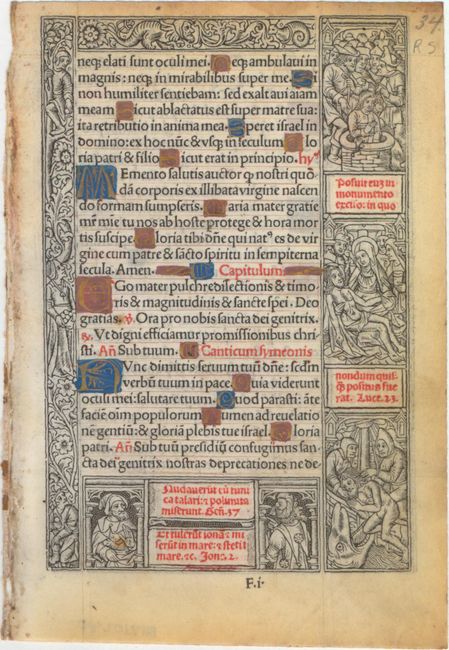 34
R S
neqȝ elati sunt oculi mei. Neqȝ ambulaui in
magnis: neqȝ in mirabilibus super me. Si
non humiliter sentiebam: sed exaltaui aīam
meam Sicut ablactatus est super matre sua:
ita retributio in anima mea. Speret israel in
domino: ex hoc nūc & vsqȝ in seculum Glo
ria patri & filio Sicut erat in principio. hyⁿ
MEmento salutis auctor ꝙ nostri quō
dā corporis ex illibata virgine nascen
do formam sumpseris. Maria mater gratie
mr̄ mie tu nos ab hoste protege & hora mor
tis suscipe. Gloria tibi dn̄e qui natꝰ es de vir
gine cum patre & sācto spiritu in sempiterna
secula. Amen. Capitulum
EGo mater pulchre dilectionis & timo
ris & magnitudinis & sancte spei. Deo
gratias. ℣. Ora pro nobis sancta dei genitrix.
℟. Vt digni efficiamur promissionibus chri
sti. Añ Sub tuum. Canticum symeonis
NVnc dimittis seruum tuū dn̄e: scđm
verbū tuum in pace. Quia viderunt
oculi mei: salutare tuum. Quod parasti: āte
faciē oīm populorum Lumen ad reuelatio
nē gentiū: & gloriā plebis tue israel. Gloria
patri. Añ Sub tuū presidiū confugimus san
cta dei genitrix nostras deprecationes ne de
Posuit euȝ in
monumento
exciso: in quo
nondum quis
ꝙ positus fue
rat. Luce. 23.
Nudauerūt eū tuni
ca talari: ⁊ polimita
miserunt. Geñ. 37
Et tulerūt ionā ⁊ mi
serūt in mare: ⁊ stetit
mare. ⁊c. Jone. 2.
F.i.